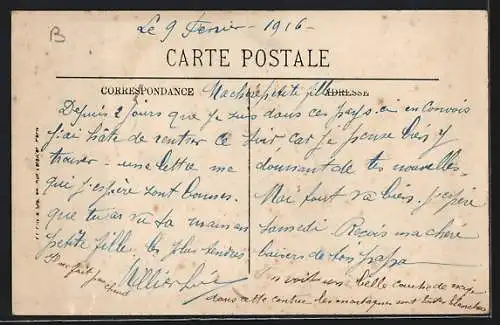 B
Le 9 Fevrier - 1916 -
CARTE POSTALE
CORRESPONDANCE Ma chère petite fille ADRESSE
Depuis 2 jours que je suis dans ces pays ci en Convois
j'ai hâte de rentrer ce soir car je pense bien y
trouver - une lettre me donnant de tes nouvelles.
qui j'espère sont bonnes. Moi tout va bien. j'espère
que tu vas samedi Reçois ma chère
petite fille les plus tendres baisers de ton papa
Il ne fait pas chaud
belle couche de neige
dans cette contrée les montagnes sont toutes blanches